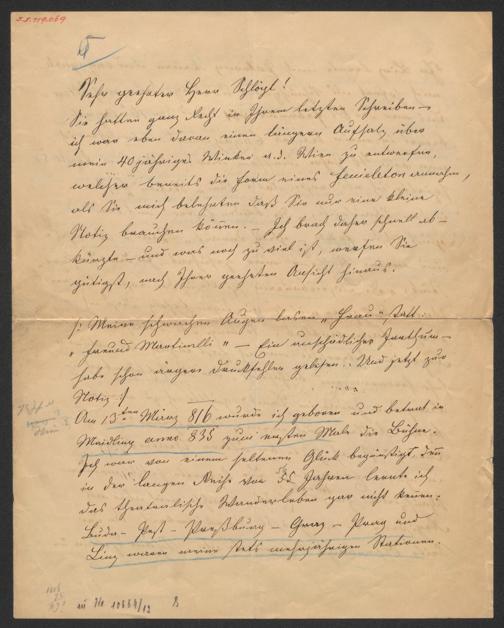 I.I.119.069
Sehr geehrter Herr Schlögl!
Sie hatten ganz Recht in Ihrem letzten Schreiben –
ich war eben daran einen längern Aufsatz über
mein 40jähriges Wirken a. d. Wien zu entwerfen,
welcher bereits die Form eines Feuielleton annahm,
als Sie mich belehrten daß Sie nur eine kleine
Notiz brauchen können. – Ich brach daher schnell ab –
kürzte – und was noch zu viel ist, werfen Sie
gütigst, nach Ihrer geehrten Ansicht hinaus.
/: Meine schwachen Augen lasen „Frau“ statt
„Freund Martinelli“ – Ein unschädlicher Irrthum –
habe schon ärgere Druckfehler gelesen. Und jetzt zur
Notiz :/
Am 13ten März 816 wurde ich geboren und betrat in
Meidling anno 835 zum ersten Male die Bühne.
Ich war von einem seltenen Glück begünstigt, denn
in der langen Reihe von 35 Jahren lernte ich
das theatralische Wanderleben gar nicht kennen:
Buda – Pest – Preßburg – Graz – Prag und
Linz waren meine stets mehrjährigen Stationen.